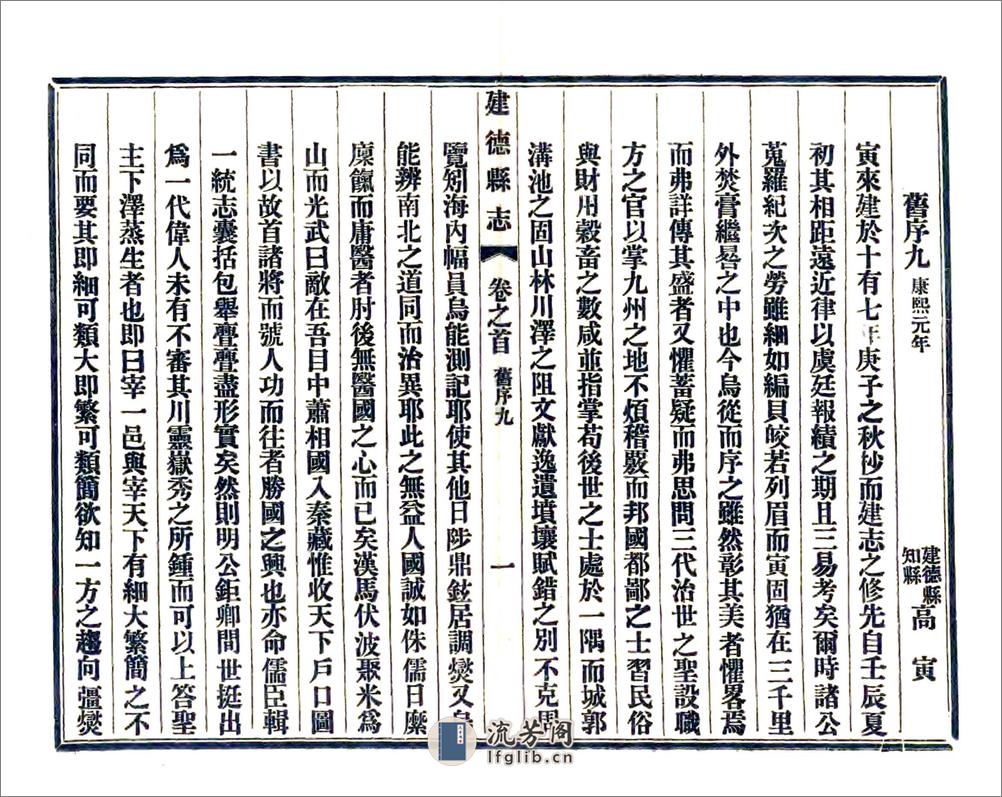 舊序九 康熙元年 建德縣知縣 高寅
寅來建於十有七年庚子之秋抄而建志之修先自壬辰夏
初其相距遠近律以虞廷報績之期且三易考矣爾時諸公
蒐羅紀次之勞雖細如編貝皎若列眉而寅固猶在三千里
外焚膏繼晷之中也今烏從而序之雖然彰其美者懼畧焉
而弗詳傳其盛者又懼蓄疑而弗思問三代治世之聖設職
方之官以掌九州之地不煩稽覈而邦國都鄙之士習民俗
與財用穀畜之數咸並指掌苟後世之士處於一隅而城郭
溝池之固山林川澤之阻文獻逸遺墳壤賦錯之別不克周
建德縣志 卷之首 舊序九 一
覽矧海內幅員烏能測記耶使其他日陟鼎鉉居調燮又烏
能辨南北之道同而治異耶此之無益人國誠如侏儒日縻
廩餼而庸醫者肘後無醫國之心而已矣漢馬伏波聚米為
山而光武曰敵在吾目中蕭相國入秦藏惟收天下戶口圖
書以故首諸將而號人功而往者勝國之興也亦命儒臣輯
一統志囊括包舉亹亹盡形實矣然則明公鉅卿間世挺出
爲一代偉人未有不審其川靈嶽秀之所鍾而可以上答聖
主下澤蒸生者也即曰宰一邑與宰天下有細大繁簡之不
同而要其即細可類大即繁可類簡欲知一方之趨向彊爕
流芳阁
lfglib.cn